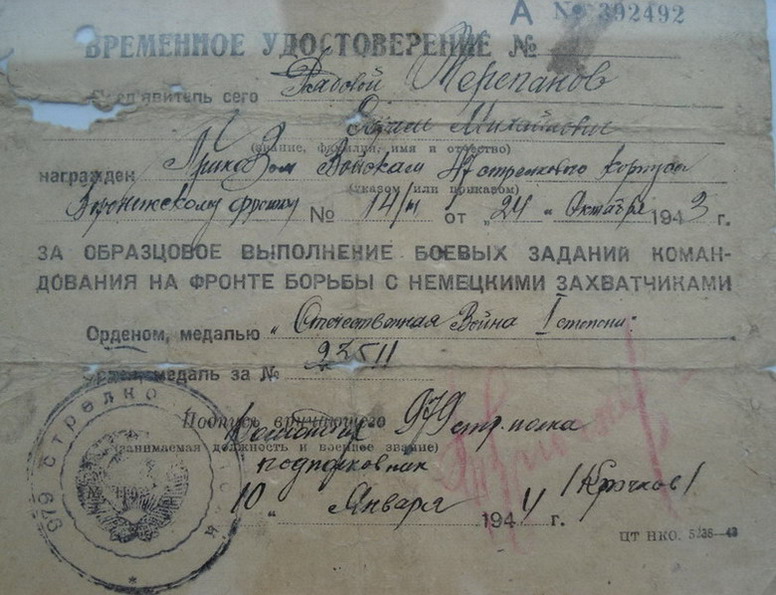 А № 392492
ВРЕМЕННОЕ УДОСТОВЕРЕНИЕ №
Пред'явитель сего Рядовой Черепанов
Михайлович
(звание, фамилия, имя и отчество)
награжден Приказом Войскам стрелкового корпуса
(указом или приказом)
Воронежскому фронту № 14/н от „24" Октября 1943 г.
ЗА ОБРАЗЦОВОЕ ВЫПОЛНЕНИЕ БОЕВЫХ ЗАДАНИЙ КОМАН-
ДОВАНИЯ НА ФРОНТЕ БОРЬБЫ С НЕМЕЦКИМИ ЗАХВАТЧИКАМИ
Орденом, медалью „Отечественная Война I степени"
медаль за № 23511
Подпись вручающего 979 стр. полка
(занимаемая должность и военное звание)
подполковник
10 „ Января 1944 г. /Крючков/
ЦТ НКО. 5236—43
979 СТРЕЛКО